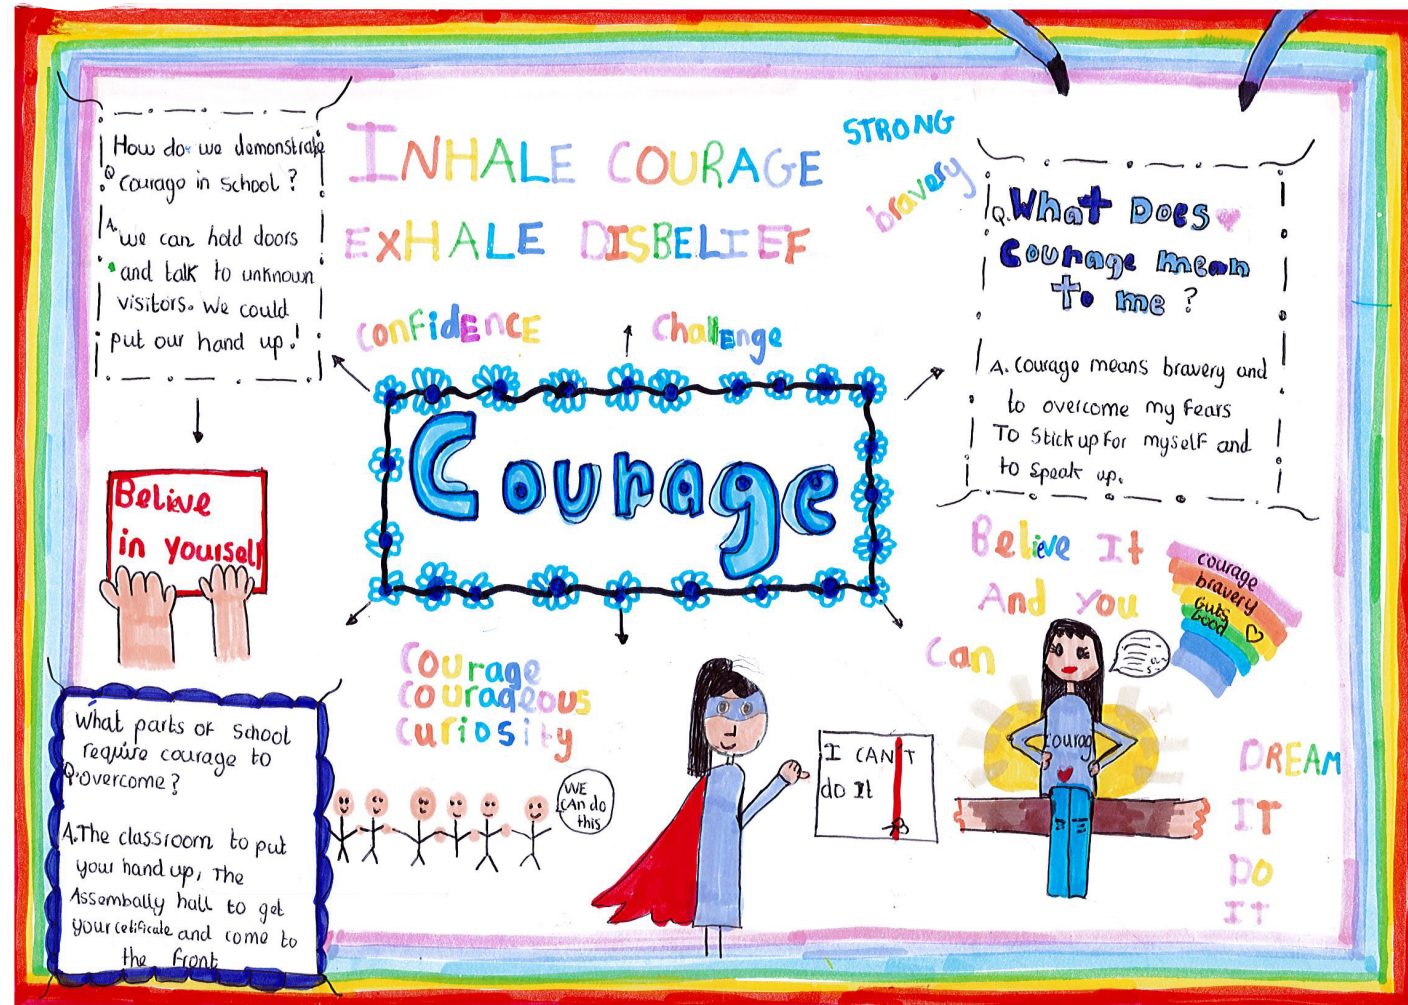 How do we demonstrate
Q courage in school ?
A. we can hold doors
and talk to unknown
visitors. We could
put our hand up.!
INHALE COURAGE
EXHALE DISBELIEF
STRONG
bravery
Q. What Does
Courage mean
to me ?
A. Courage means bravery and
to overcome my fears
To stick up for myself and
to speak up.
ConfidENCE
Challenge
Courage
Believe
in yourself
Believe It
And you
Can
courage
bravery
Guts
Good
Courage
couradeous
Curiosity
What parts of school
require courage to
Q. overcome ?
A. The classroom to put
your hand up, The
Assembally hall to get
your cetificate and come to
the front
WE
CAn do
this
I CAN'T
do It
Courag
DREAM
IT
DO
IT